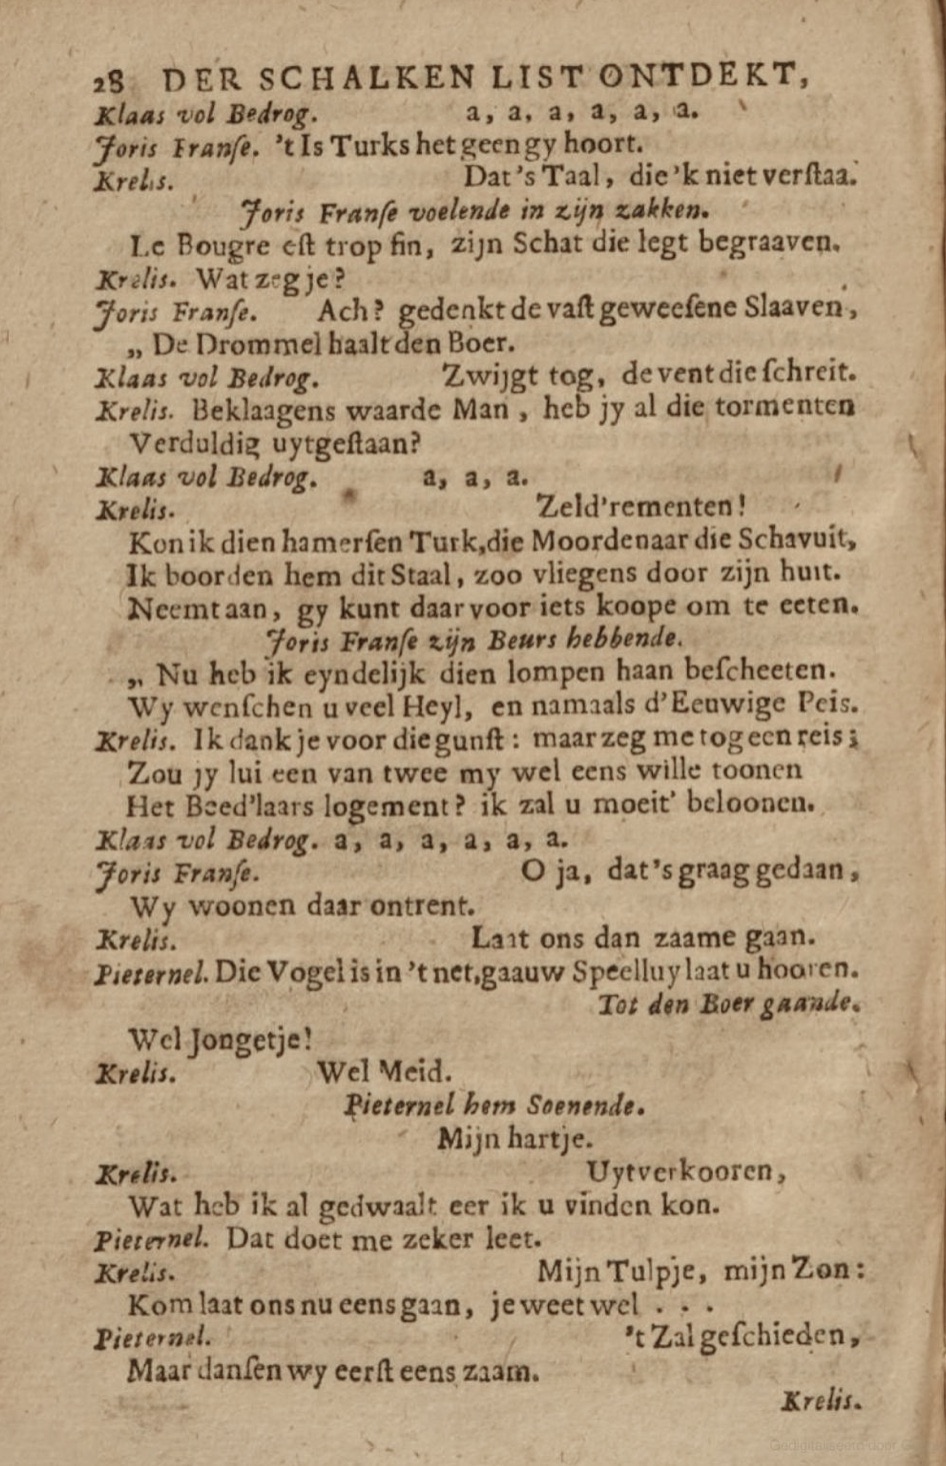 28 DER SCHALKEN LIST ONTDEKT,
Klaas vol Bedrog. a, a, a, a, a, a.
Joris Franſe. 't Is Turks het geen gy hoort.
Krelis. Dat's Taal, die 'k niet verſtaa.
Joris Franſe voelende in zijn zakken.
Le Bougre eſt trop fin, zijn Schat die legt begraaven.
Krelis. Wat zeg je?
Joris Franſe. Ach? gedenkt de vaſt geweeſene Slaaven,
„ De Drommel haalt den Boer.
Klaas vol Bedrog. Zwijgt tog, de vent die ſchreit.
Krelis. Beklaagens waarde Man, heb jy al die tormenten
Verduldig uytgeſtaan?
Klaas vol Bedrog. a, a, a.
Krelis. Zeld'rementen!
Kon ik dien hamerſen Turk, die Moordenaar die Schavuit,
Ik boorden hem dit Staal, zoo vliegens door zijn huit.
Neemt aan, gy kunt daar voor iets koope om te eeten.
Joris Franſe zijn Beurs hebbende.
„ Nu heb ik eyndelijk dien lompen haan beſcheeten.
Wy wenſchen u veel Heyl, en namaals d'Eeuwige Peis.
Krelis. Ik dank je voor die gunſt: maar zeg me tog een reis;
Zou jy lui een van twee my wel eens wille toonen
Het Beed'laars logement? ik zal u moeit' beloonen.
Klaas vol Bedrog. a, a, a, a, a, a.
Joris Franſe. O ja, dat's graag gedaan,
Wy woonen daar ontrent.
Krelis. Laat ons dan zaame gaan.
Pieternel. Die Vogel is in 't net, gaauw Speelluy laat u hooren.
Tot den Boer gaande.
Wel Jongetje!
Krelis. Wel Meid.
Pieternel hem Soenende.
Mijn hartje.
Krelis. Uytverkooren,
Wat heb ik al gedwaalt eer ik u vinden kon.
Pieternel. Dat doet me zeker leet.
Krelis. Mijn Tulpje, mijn Zon:
Kom laat ons nu eens gaan, je weet wel . . .
Pieternel. 't Zal geſchieden,
Maar danſen wy eerſt eens zaam.
Krelis.